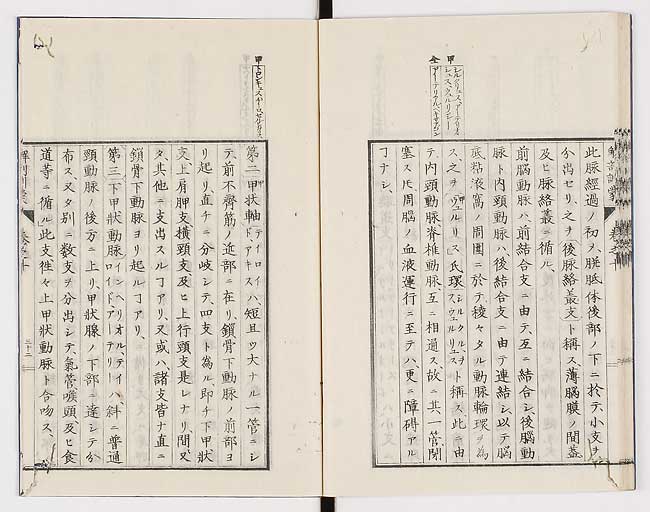 此脈經過ノ初ヲ、胼胝体後部ノ下ニ於テ、小支ヲ
分出セリ、之ヲ後脈絡叢支ト稱ス、薄腦膜ノ間葢
及ヒ脈絡叢ニ循ル、
前腦動脈ハ前結合支ニ由テ、互ニ結合シ、後腦動
脈ト内頸動脈ハ、後結合支ニ由テ連結シ、以テ腦
底粘液窩ノ周圍ニ於テ稜々タル動脈輪環ヲ為
ス、之ヲウェルリス氏環ト稱ス、此ニ由
テ、内頸動脈脊椎動脈、互ニ相通ス、故ニ其一管閉
塞スル𪜈周腦ノ血液運行ニ至テハ更ニ障碍アル
丁ナシ、
甲
仝
解剖訓蒙
巻之十
第二、甲状軸テイロイドアキスハ、短且ツ大ナル一管ニシ
テ、前不齊筋ノ近部ニ在リ、鎖骨下動脈ノ前部ヨ
リ起リ、直チニ分岐シテ、四支ト為ル、即チ下甲狀
支、上肩胛支、横頸支、及ヒ上行頸支是レナリ、間又
タ、其他ニ支出スル丁アリ、又或ハ、諸支皆ナ直ニ
鎖骨下動脈ヨリ起ル丁アリ、
第三、下甲狀動脈インヘリオル、テイハ、斜ニ普通
頸動脈ノ後方ニ上リ、甲狀腺ノ下部ニ達シテ分
布ス、又タ別ニ數支ヲ分出シテ、氣管喉頭及ヒ食
道等ニ循ル、此支徃々上甲狀動脈ト合吻ス、
甲
解剖訓蒙
巻之十
三十二